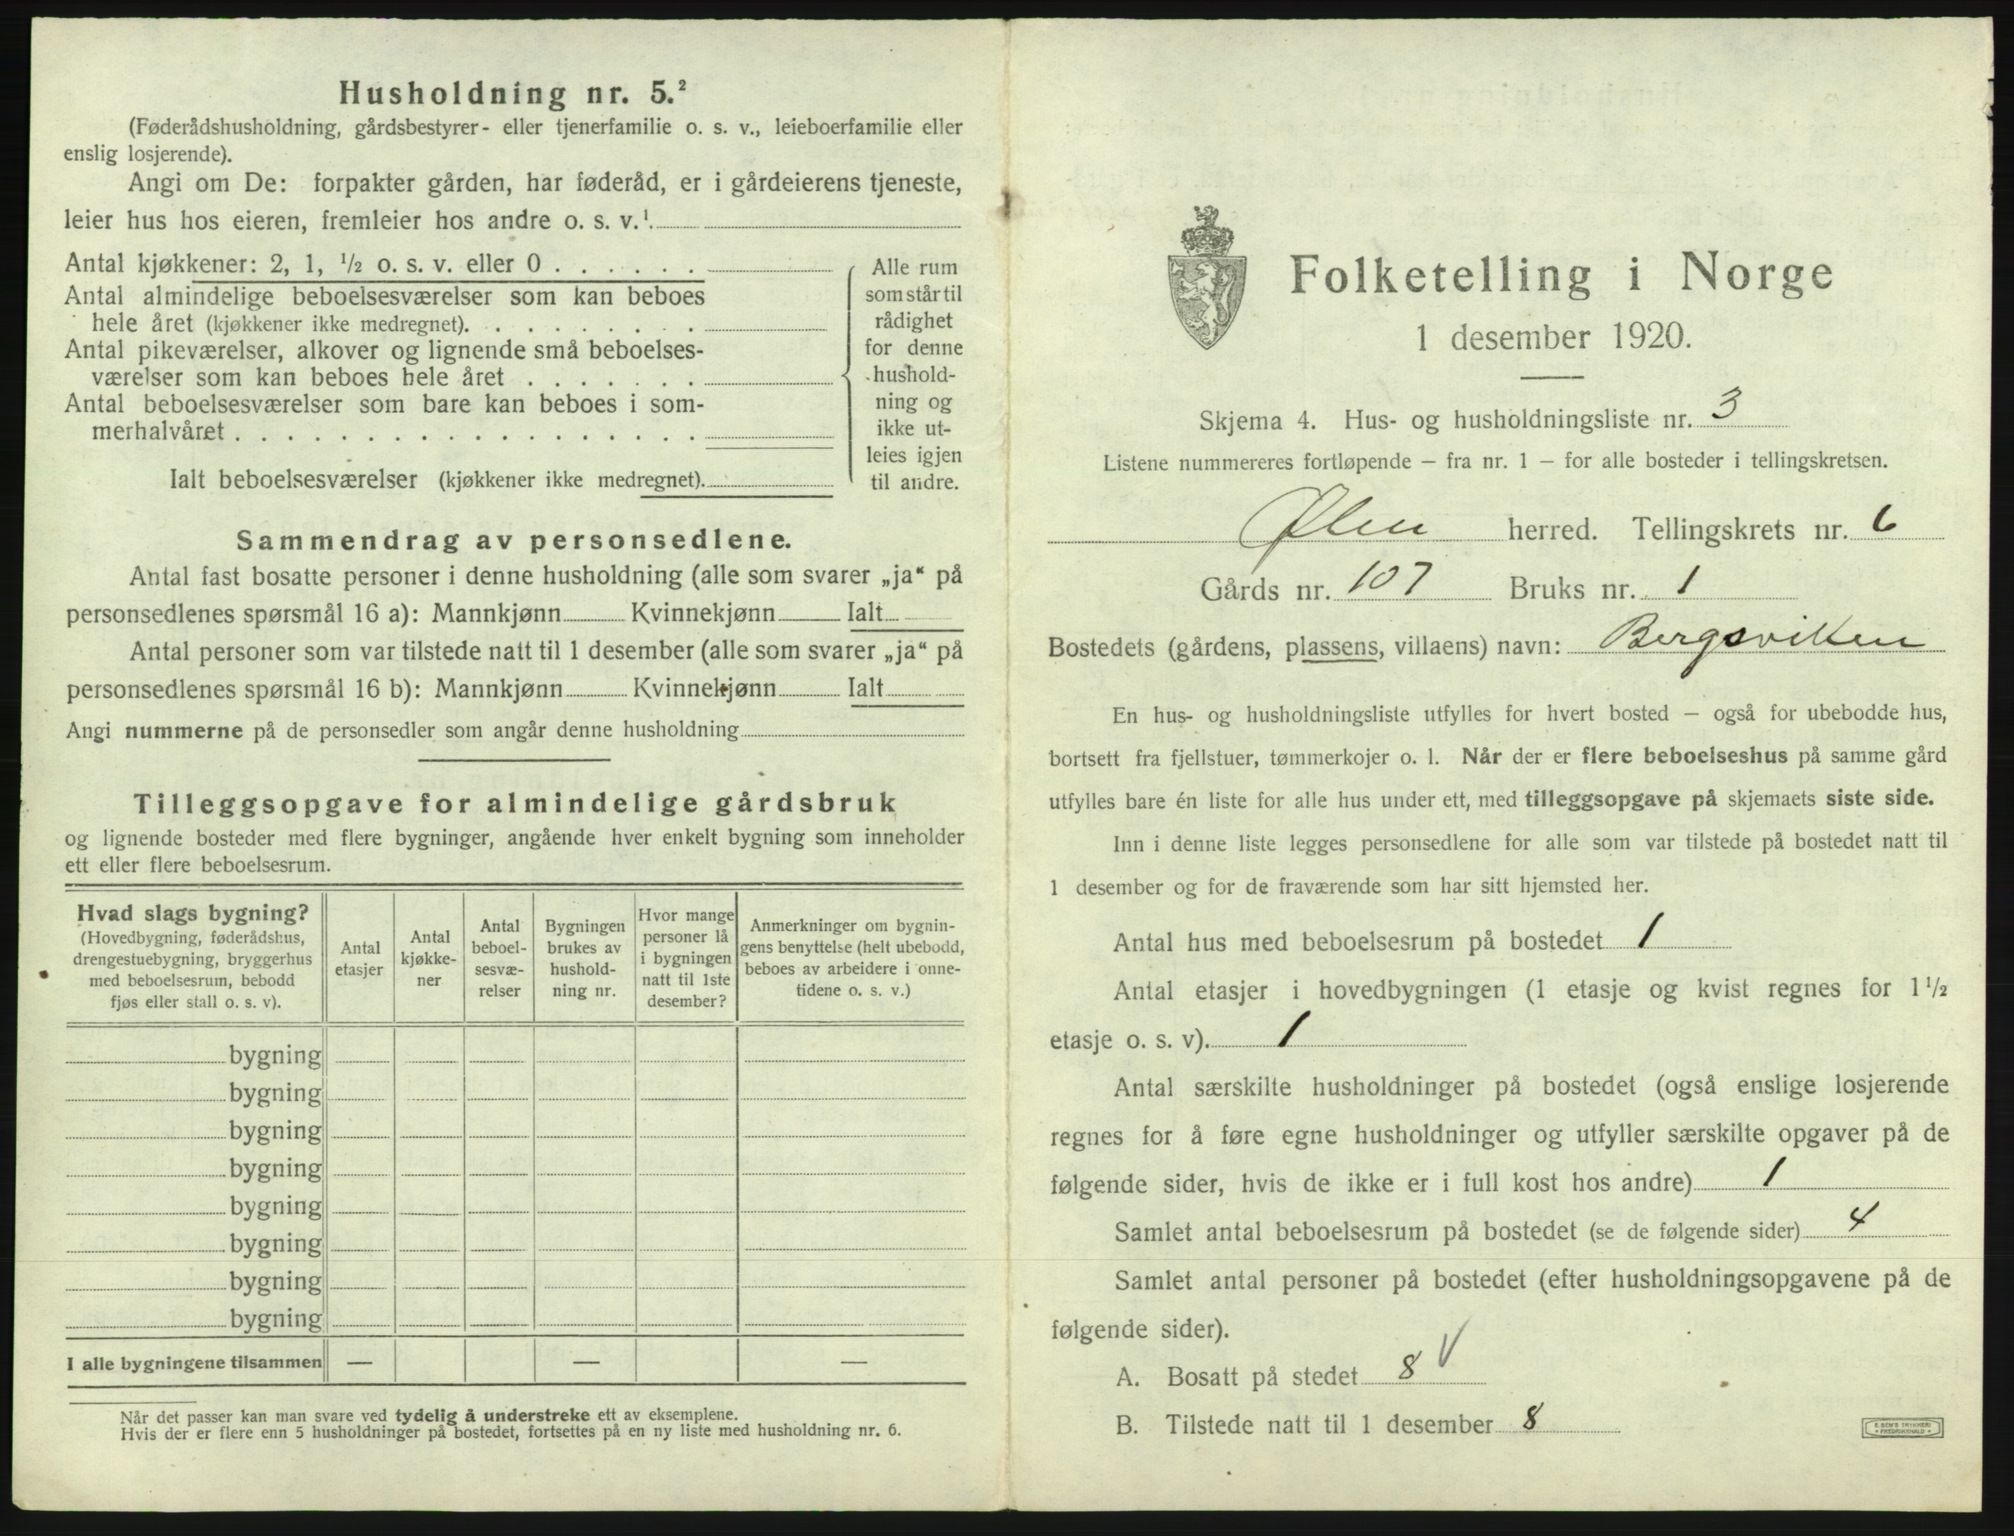 Husholdning nr. 5.²
(Føderådshusholdning, gårdsbestyrer- eller tjenerfamilie o. s. v., leieboerfamilie eller
enslig losjerende).
Angi om De: forpakter gården, har føderåd, er i gårdeierens tjeneste,
leier hus hos eieren, fremleier hos andre o. s. v.¹
Antal kjøkkener: 2, 1, ½ o. s. v. eller 0 . . . . . .
Antal almindelige beboelsesværelser som kan beboes
hele året (kjøkkener ikke medregnet). . . . . . . . .
Antal pikeværelser, alkover og lignende små beboelses-
værelser som kan beboes hele året . . . . . . .
Antal beboelsesværelser som bare kan beboes i som-
merhalvåret . . . . . . . . . . . . . . . . . .
Ialt beboelsesværelser (kjøkkener ikke medregnet).
Alle rum
som står til
rådighet
for denne
hushold-
ning og
ikke ut-
leies igjen
til andre.
Sammendrag av personsedlene.
Antal fast bosatte personer i denne husholdning (alle som svarer „ja“ på
personsedlenes spørsmål 16 a): Mannkjønn Kvinnekjønn Ialt
Antal personer som var tilstede natt til 1 desember (alle som svarer „ja“ på
personsedlenes spørsmål 16 b): Mannkjønn Kvinnekjønn Ialt
Angi nummerne på de personsedler som angår denne husholdning
Tilleggsopgave for almindelige gårdsbruk
og lignende bosteder med flere bygninger, angående hver enkelt bygning som inneholder
ett eller flere beboelsesrum.
Hvad slags bygning?
(Hovedbygning, føderådshus,
drengestuebygning, bryggerhus
med beboelsesrum, bebodd
fjøs eller stall o. s. v).
Antal
etasjer
Antal
kjøkke-
ner
Antal
beboel-
sesvæ-
relser
Bygningen
brukes av
hushold-
ning nr.
Hvor mange
personer lå
i bygningen
natt til 1ste
desember?
Anmerkninger om bygnin-
gens benyttelse (helt ubebodd,
beboes av arbeidere i onne-
tidene o. s. v.)
bygning
bygning
bygning
bygning
bygning
bygning
bygning
bygning
I alle bygningene tilsammen — — —
Når det passer kan man svare ved tydelig å understreke ett av eksemplene.
Hvis der er flere enn 5 husholdninger på bostedet, fortsettes på en ny liste med husholdning nr. 6.
Folketelling i Norge
1 desember 1920.
Skjema 4. Hus- og husholdningsliste nr. 3
Listene nummereres fortløpende – fra nr. 1 – for alle bosteder i tellingskretsen.
Ølen herred. Tellingskrets nr. 6
Gårds nr. 107 Bruks nr. 1
Bostedets (gårdens, plassens, villaens) navn: Bergsviken
En hus- og husholdningsliste utfylles for hvert bosted – også for ubebodde hus,
bortsett fra fjellstuer, tømmerkojer o. l. Når der er flere beboelseshus på samme gård
utfylles bare én liste for alle hus under ett, med tilleggsopgave på skjemaets siste side.
Inn i denne liste legges personsedlene for alle som var tilstede på bostedet natt til
1 desember og for de fraværende som har sitt hjemsted her.
Antal hus med beboelsesrum på bostedet 1
Antal etasjer i hovedbygningen (1 etasje og kvist regnes for 1½
etasje o. s. v). 1
Antal særskilte husholdninger på bostedet (også enslige losjerende
regnes for å føre egne husholdninger og utfyller særskilte opgaver på de
følgende sider, hvis de ikke er i full kost hos andre) 1
Samlet antal beboelsesrum på bostedet (se de følgende sider) 4
Samlet antal personer på bostedet (efter husholdningsopgavene på de
følgende sider).
A. Bosatt på stedet 8 V
B. Tilstede natt til 1 desember 8
E. SEM'S TRYKKERI
• FREDRIKSHALD •